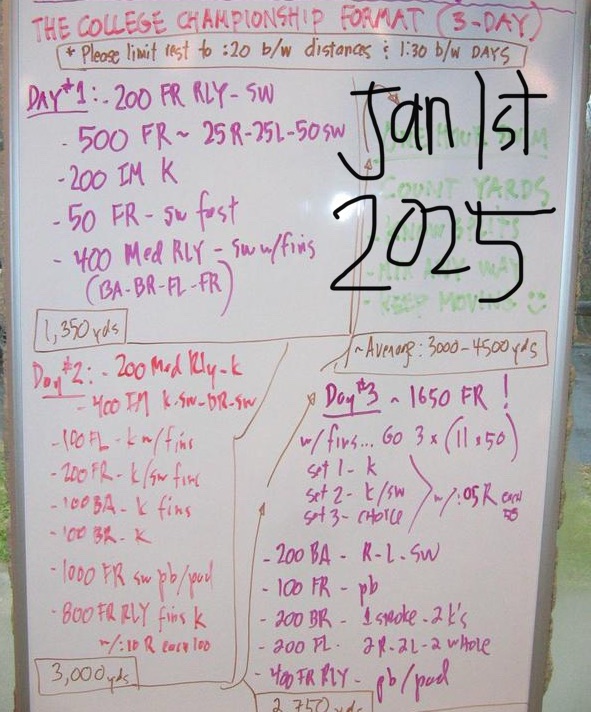 THE COLLEGE CHAMPIONSHIP FORMAT (3-DAY)
* Please limit rest to :20 b/w distances & 1:30 b/w DAYS
DAY #1: - 200 FR RLY - SW
- 500 FR ~ 25R-25L-50SW
- 200 IM K
- 50 FR - SW fast
- 400 Med RLY - SW w/fins
(BA-BR-FL-FR)
1,350 yds
Jan 1st
2025
COUNT YARDS
- MIX ANY WAY
- KEEP MOVING
~ Average: 3000-4500 yds
Day #2: - 200 Med Rly - k
- 400 IM K-SW-DR-SW
- 100 FL - k w/fins
- 200 FR - k/sw fins
- 100 BA - k fins
- 100 BR - K
- 1000 FR sw pb/pad
- 800 FR RLY fins K
w/:10 R each 100
3,000 yds
Day #3 ~ 1650 FR !
w/fins... GO 3 x (11 x 50)
set 1 - k
set 2 - k/sw
set 3 - CHOICE
w/:05 R each 50
- 200 BA - R-L-SW
- 100 FR - pb
- 200 BR - 1 stroke - 2 k's
- 200 FL - 2R-2L-2 WHOLE
- 400 FR RLY - pb/pad
2,750 yds